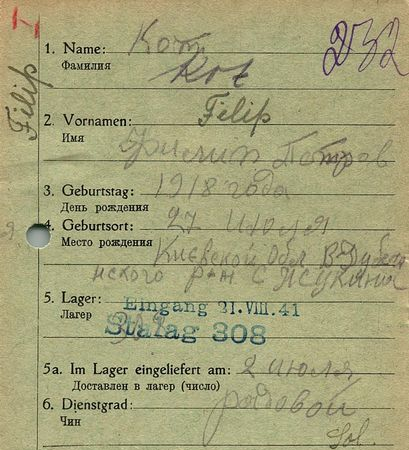 252
Filip
1. Name: Кот
Фамилия Kot
2. Vornamen: Filip
Имя Филип Петров
3. Geburtstag: 1918 года
День рождения
4. Geburtsort: 27 июля
Место рождения Киевской Обл
р-н С
5. Lager: Eingang 21.VIII.41
Лагер 308
Stalag 308
5a. Im Lager eingeliefert am: 2 июля
Доставлен в лагер (число)
6. Dienstgrad: рядовой
Чин Sol.